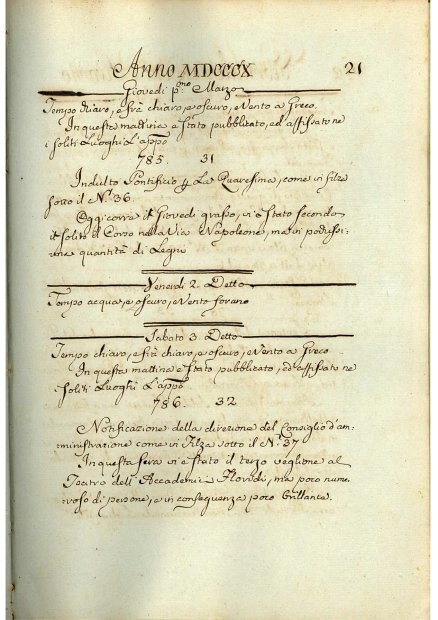 Anno MDCCCX 21
Giovedi p.mo Marzo
Tempo chiaro, e frè chiaro, e oscuro, e Vento a Greco.
In questa mattina è stato pubblicato, ed affissato ne
i soliti Luoghi L'appo
785. 31
Indulto Pontificio p La Quaresima, come in filza
sotto il N.º 36
Oggi corra il Giovedi grasso, vi è stato secondo
il solito il Corso nella Via Napoleone, ma vi
una quantità di Legni
Venerdi 2. Detto
Tempo acquat, e oscuro, e Vento forano
Sabato 3. Detto
Tempo chiaro, e frè chiaro, e oscuro, e Vento a Greco
In questa mattina è stato pubblicato, ed affissato ne
i soliti Luoghi L'appo
786. 32
Notificazione della direzione del Consiglio d'am-
ministrazione come in Filza sotto il N.º 37
In questa sera vi è stato il terzo veglione al
Teatro dell'Accademi Floridi, ma poco nume-
roso di persone, e in conseguenza poco brillante.